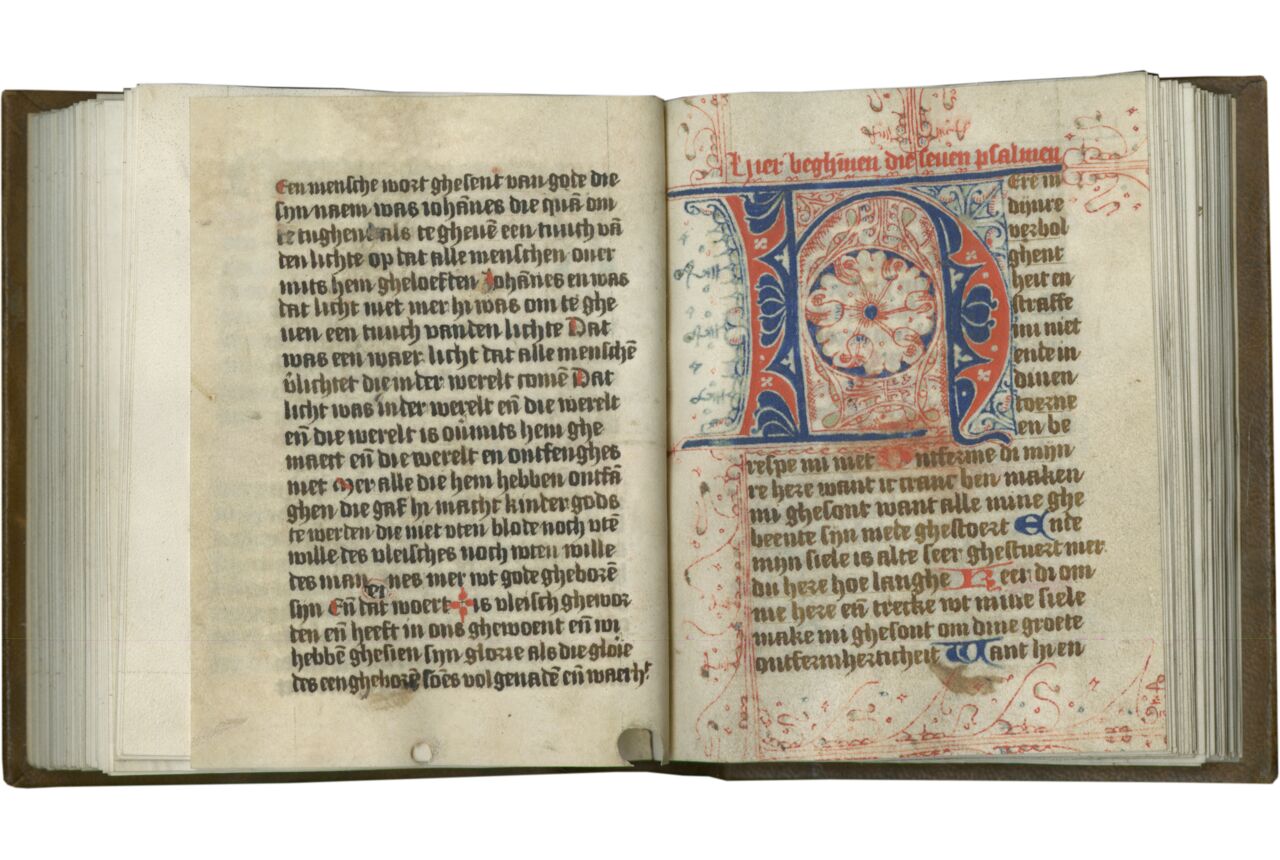 Een mensche wort ghesent van gode die
sijn naem was iohānes die quā om
te tughen als te gheuē een tuuch vā
den lichte op dat alle menschen ouer
mits hem gheloeften Johānes en was
dat licht niet mer hi was om te ghe
uen een tuuch vanden lichte Dat
was een waer licht dat alle menschē
v̄lichtet die in der werelt comē Dat
licht was in der werelt eñ die werelt
eñ die werelt is ouīmits hem ghe
maect eñ die werelt en ontfenghes
niet Mer alle die hem hebben ontfā
ghen die gaf hi macht kinder gods
te werden die niet vten blode noch vtē
wille des vleisches noch wten wille
des mannes mer wt gode gheborē
sijn Eñ dat woert is vleisch ghewor
den eñ heeft in ons ghewoent eñ wi
hebbē ghesien sijn glorie als die glorie
des eengheborē soēs vol genadē eñ waerh
Hier beghīnen die seuen psalmen
Here in
dijnre
verbol
ghent
heit en
straffe
mi niet
ende in
dinen
toerne
en be
respe mi niet Ontferme di mijn
re here want ic cranc ben maken
mi ghesont want alle mine ghe
beente sijn mede ghestoert Ende
mijn siele is alte seer ghestuert mer
du here hoe langhe Keer di om
me here eñ trecke wt mine siele
make mi ghesont om dine groete
ontfermherticheit Want hi en